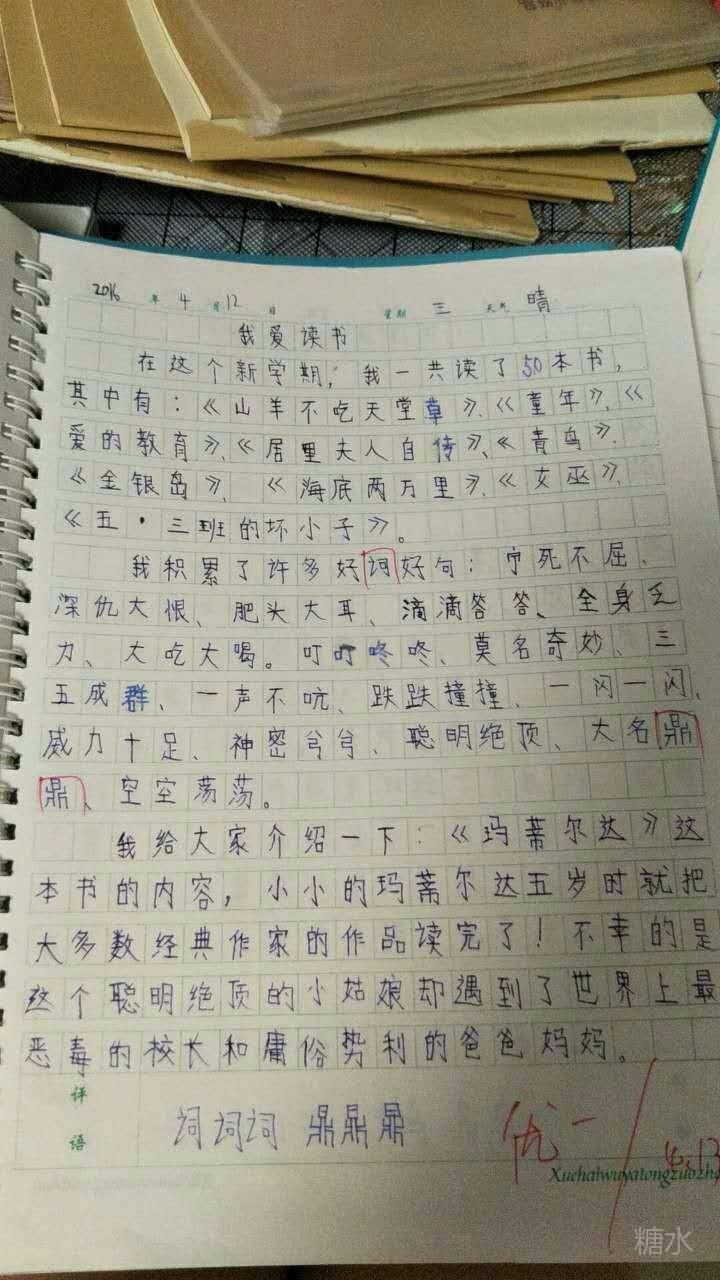 2016 年 4 月 12 日 星期 三 天气 晴
我爱读书
在这个新学期，我一共读了50本书，
其中有：《山羊不吃天堂草》、《童年》、《
爱的教育》、《居里夫人自传》、《青鸟》、
《金银岛》、《海底两万里》、《女巫》、
《五·三班的坏小子》。
我积累了许多好词好句：宁死不屈、
深仇大恨、肥头大耳、滴滴答答、全身乏
力、大吃大喝。叮叮咚咚、莫名奇妙、三
五成群、一声不吭、跌跌撞撞、一闪一闪、
威力十足、神密兮兮、聪明绝顶、大名鼎
鼎、空空荡荡。
我给大家介绍一下：《玛蒂尔达》这
本书的内容，小小的玛蒂尔达五岁时就把
大多数经典作家的作品读完了！不幸的是
这个聪明绝顶的小姑娘却遇到了世界上最
恶毒的校长和庸俗势利的爸爸妈妈。
评语
词词词 鼎鼎鼎
优一
4.13
Xuehaiwuyatongzuozhe
糖水